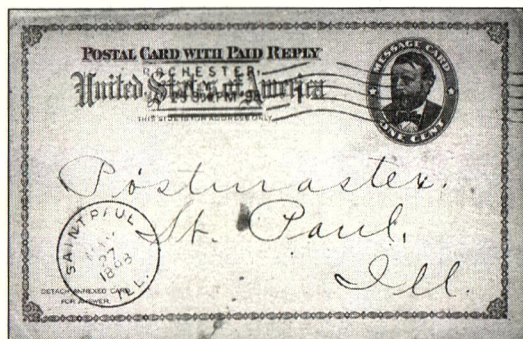 POSTAL CARD WITH PAID REPLY
ROCHESTER,
United States of America
THIS SIDE IS FOR ADDRESS ONLY.
MESSAGE CARD
ONE CENT
Postmaster.
St. Paul,
Ill.
SAINT PAUL
27
1893
ILL.
DETACH ANNEXED CARD
FOR ANSWER.